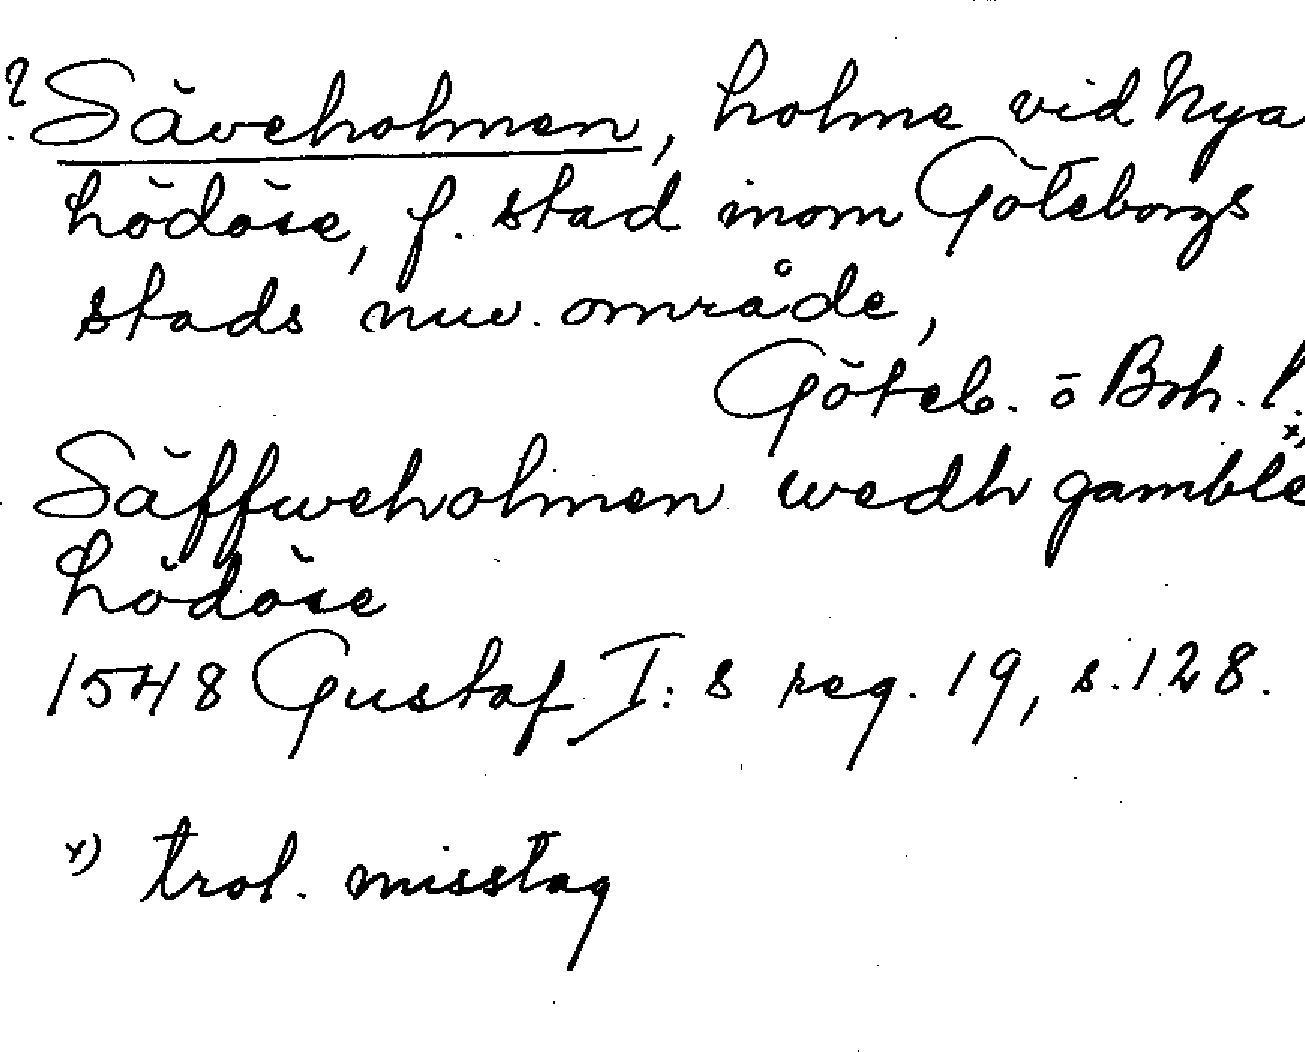 ? Säveholmen, holme vid Nya
Lödöse, f. stad inom Göteborgs
stads nuv. område,
Göteb. o Boh. l.
Säffweholmen wedh gamble x)
Lödöse
1548 Gustaf I:s reg. 19, s. 128.
x) trol. misstag